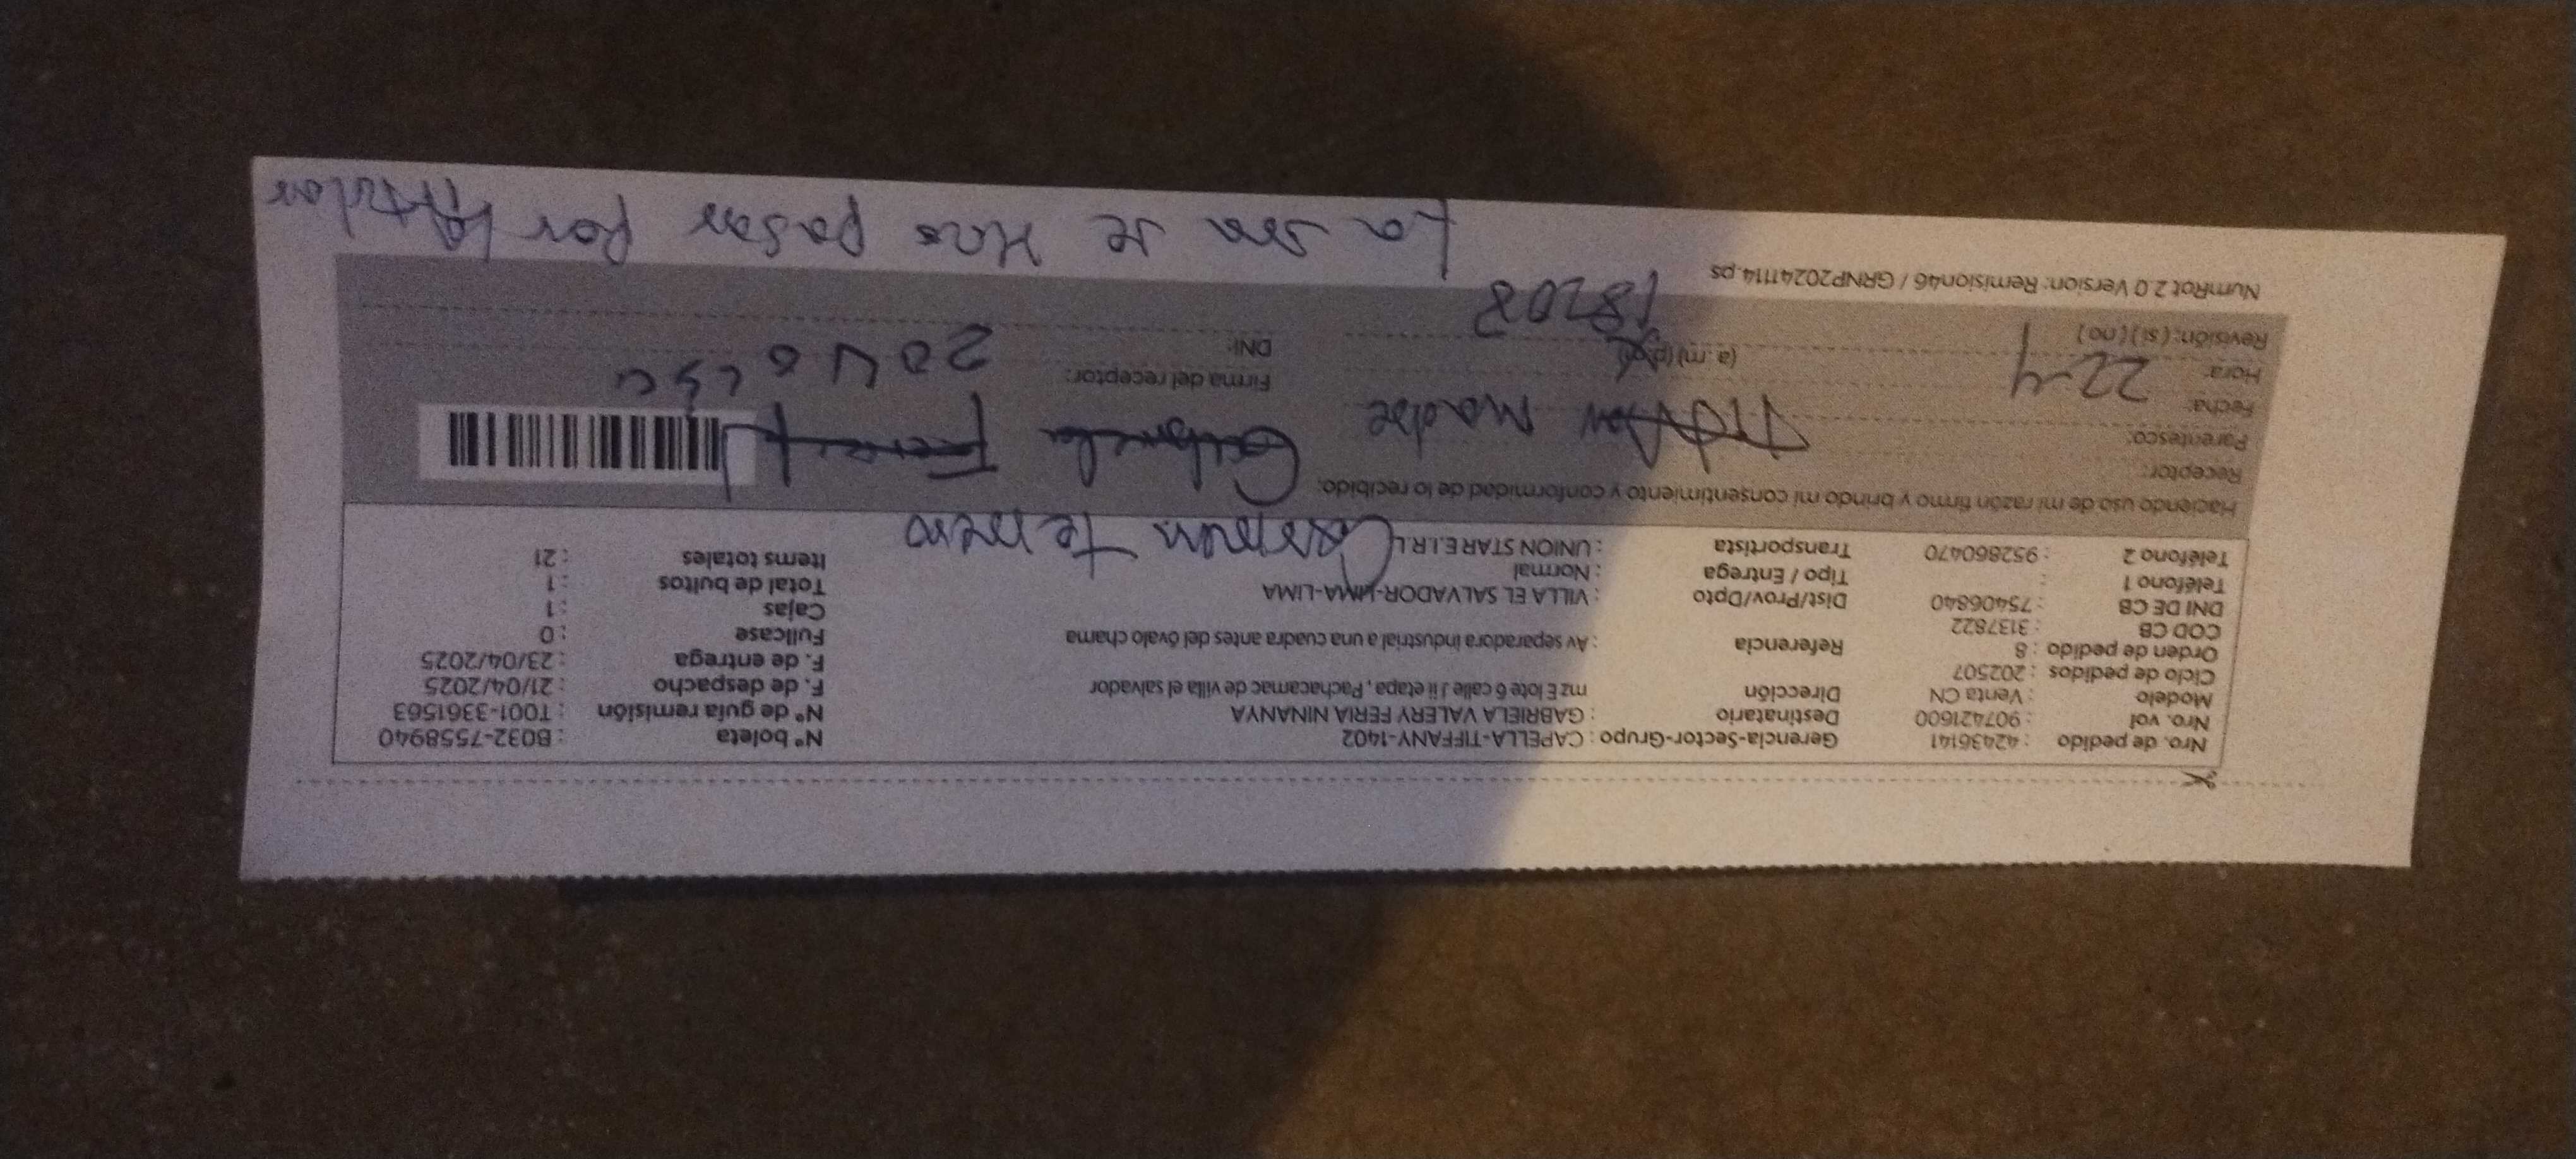 Nro. de pedido : 42436141 Gerencia-Sector-Grupo : CAPELLA-TIFFANY-1402 Nº boleta : B032-7558940
Nro. vol : 907421600 Destinatario : GABRIELA VALERY FERIA NINANYA Nº de guía remisión : T001-3361563
Modelo : Venta CN Dirección mz E lote 6 calle J ii etapa , Pachacamac de villa el salvador F. de despacho : 21/04/2025
Ciclo de pedidos : 202507 F. de entrega : 23/04/2025
Orden de pedido : 8 Referencia : Av separadora industrial a una cuadra antes del óvalo chama Fullcase : 0
COD CB : 3137822 Cajas : 1
DNI DE CB : 75406840 Dist/Prov/Dpto : VILLA EL SALVADOR-LIMA-LIMA Total de bultos : 1
Teléfono 1 : Tipo / Entrega : Normal Items totales : 21
Teléfono 2 : 952860470 Transportista : UNION STAR E.I.R.L
Haciendo uso de mi razón firmo y brindo mi consentimiento y conformidad de lo recibido:
Receptor:
Parentesco: madre Gabriela
Fecha: 22-4 Firma del receptor:
Hora: (a. m) (p. m)
Revisión: ( si ) ( no ) DNI:
NumRot 2.0 Version: Remision46 / GRNP20241114.ps
La sra se Hao pasar por titular